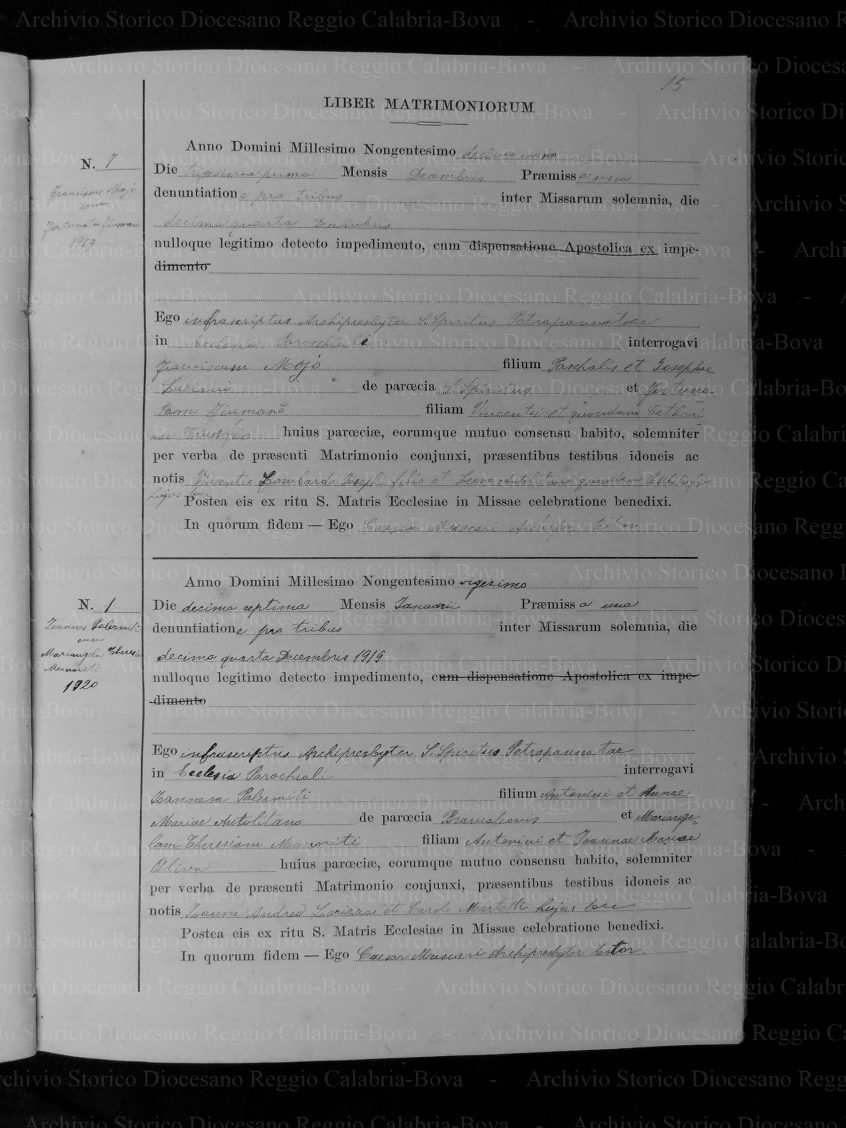 15
LIBER MATRIMONIORUM
Anno Domini Millesimo Nongentesimo decimo nono
N. 7
Die vigesima prima Mensis Decembris Præmissa una
denuntiatione pro tribus inter Missarum solemnia, die
decima quarta Decembris
nulloque legitimo detecto impedimento, cum dispensatione Apostolica ex impe-
dimento
Franciscus Mojò
cum
Fortunata
1919
Ego infrascriptus Archipresbyter S. Spiritus Petrapannatae
in ecclesia Parochiali interrogavi
Franciscum Mojò filium Paschalis et Josephae
Luciano de parœcia S. Spiritus et Fortuna-
tam filiam Vincentii et quondam Cathari
nae huius parœciæ, eorumque mutuo consensu habito, solemniter
per verba de præsenti Matrimonio conjunxi, præsentibus testibus idoneis ac
notis Vicentio Lombardo Joseph filio et quondam
hujus loci
Postea eis ex ritu S. Matris Ecclesiae in Missae celebratione benedixi.
In quorum fidem — Ego Caesar Muscari
Anno Domini Millesimo Nongentesimo vigesimo
N. 1
Die decima septima Mensis Januarii Præmissa una
denuntiatione pro tribus inter Missarum solemnia, die
decima quarta Decembris 1919
nulloque legitimo detecto impedimento, cum dispensatione Apostolica ex impe-
dimento
Joannes Palermiti
cum
Mariangela Theresa
1920
Ego infrascriptus Archipresbyter S. Spiritus Petrapannatae
in Ecclesia Parochiali interrogavi
Joannem Palermiti filium Antonini et Annae
Mariae de parœcia et Mariange-
lam Theresiam filiam Antonini et Joannae Mariae
Oliva huius parœciæ, eorumque mutuo consensu habito, solemniter
per verba de præsenti Matrimonio conjunxi, præsentibus testibus idoneis ac
notis Joanne Andrea et hujus loci
Postea eis ex ritu S. Matris Ecclesiae in Missae celebratione benedixi.
In quorum fidem — Ego Caesar Muscari Archipresbyter
Archivio Storico Diocesano Reggio Calabria-Bova